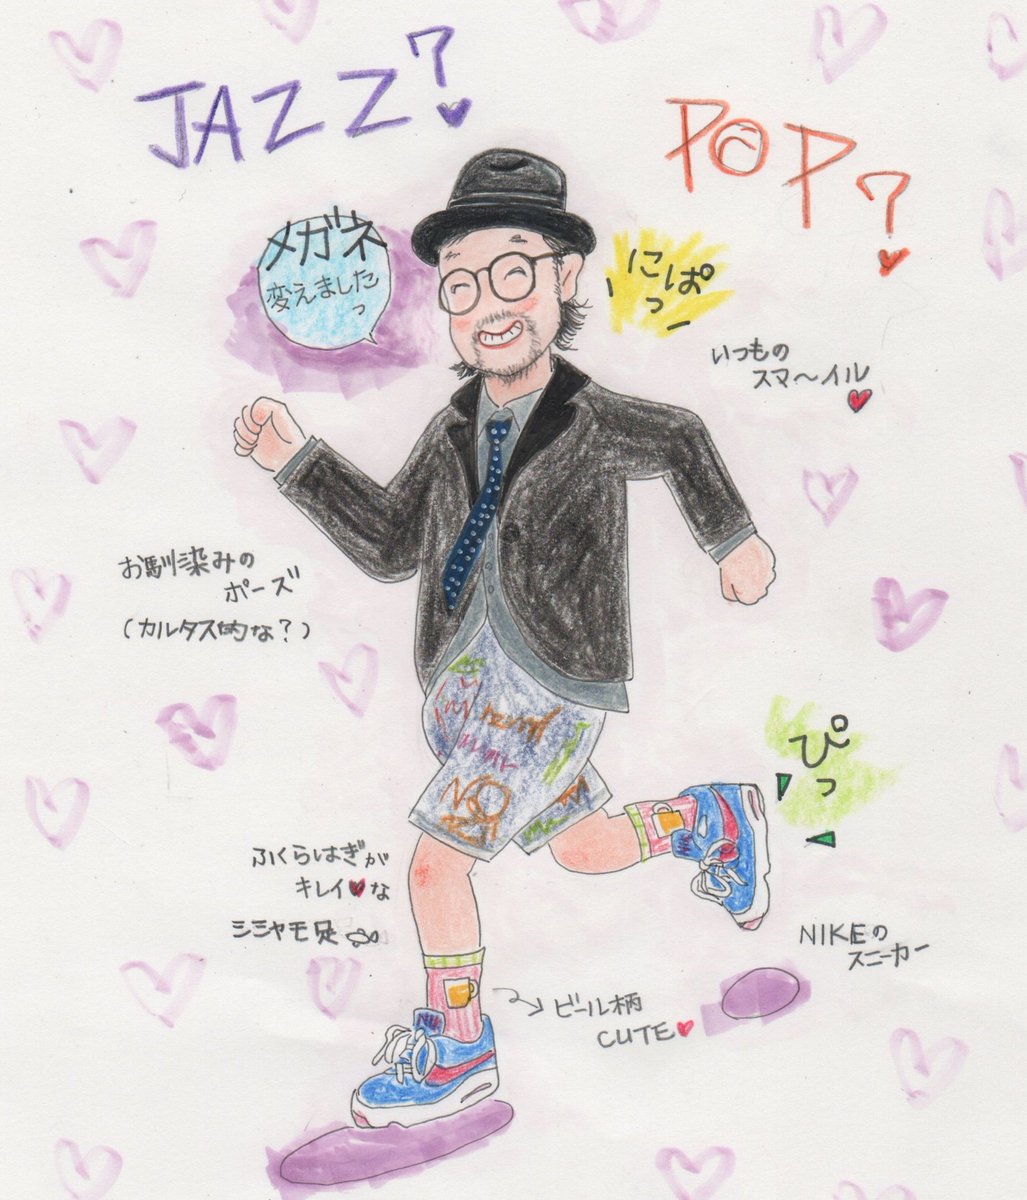 JAZZ?
POP?
メガネ
変えましたっ
にぱっ
いつもの
スマ〜イル
お馴染みの
ポーズ
(カルタス的な?)
ぴっ
ふくらはぎが
キレイ♥な
シシャモ足
NIKEの
スニーカー
ビール柄
CUTE♥